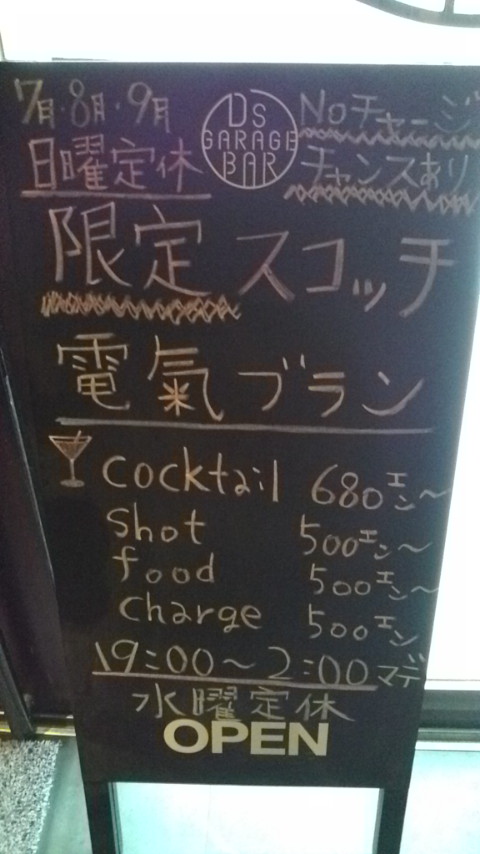 7月・8月・9月
日曜定休
DS
GARAGE
BAR
Noチャージ
チャンスあり
限定スコッチ
電氣ブラン
cocktail 680エン〜
shot 500エン〜
food 500エン〜
charge 500エン
19:00〜2:00マデ
水曜定休
OPEN